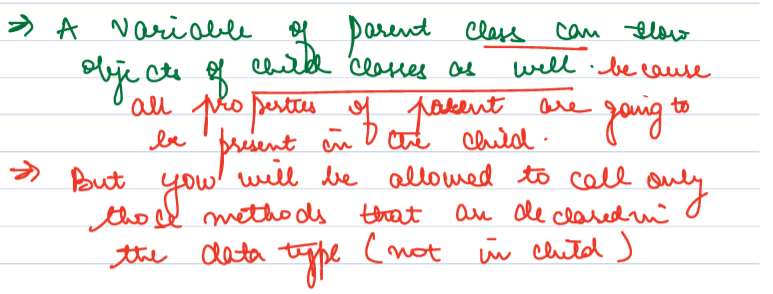 ⇒ A variable of parent class can store
objects of child classes as well. because
all properties of parent are going to
be present in the child.
⇒ But you will be allowed to call only
those methods that are declared in
the data type (not in child)